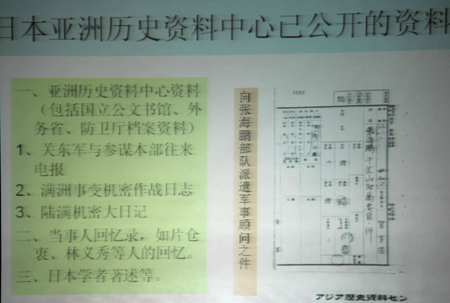 日本亚洲历史资料中心已公开的资料
一、亚洲历史资料中心资料
（包括国立公文书馆、外
务省、防卫厅档案资料）
1、关东军与参谋本部往来
电报
2、满洲事变机密作战日志
3、陆满机密大日记
二、当事人回忆录，如片仓
衷、林义秀等人的回忆。
三、日本学者著述等。
向张海鹏部队派遣军事顾问之件
アジア歴史資料セン